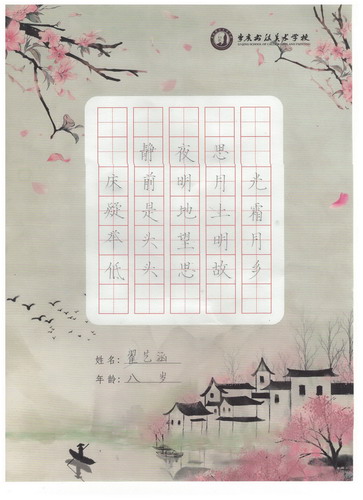 书法美术学校
静夜思
床前明月光
疑是地上霜
举头望明月
低头思故乡
姓名：翟艺涵
年龄：八 岁